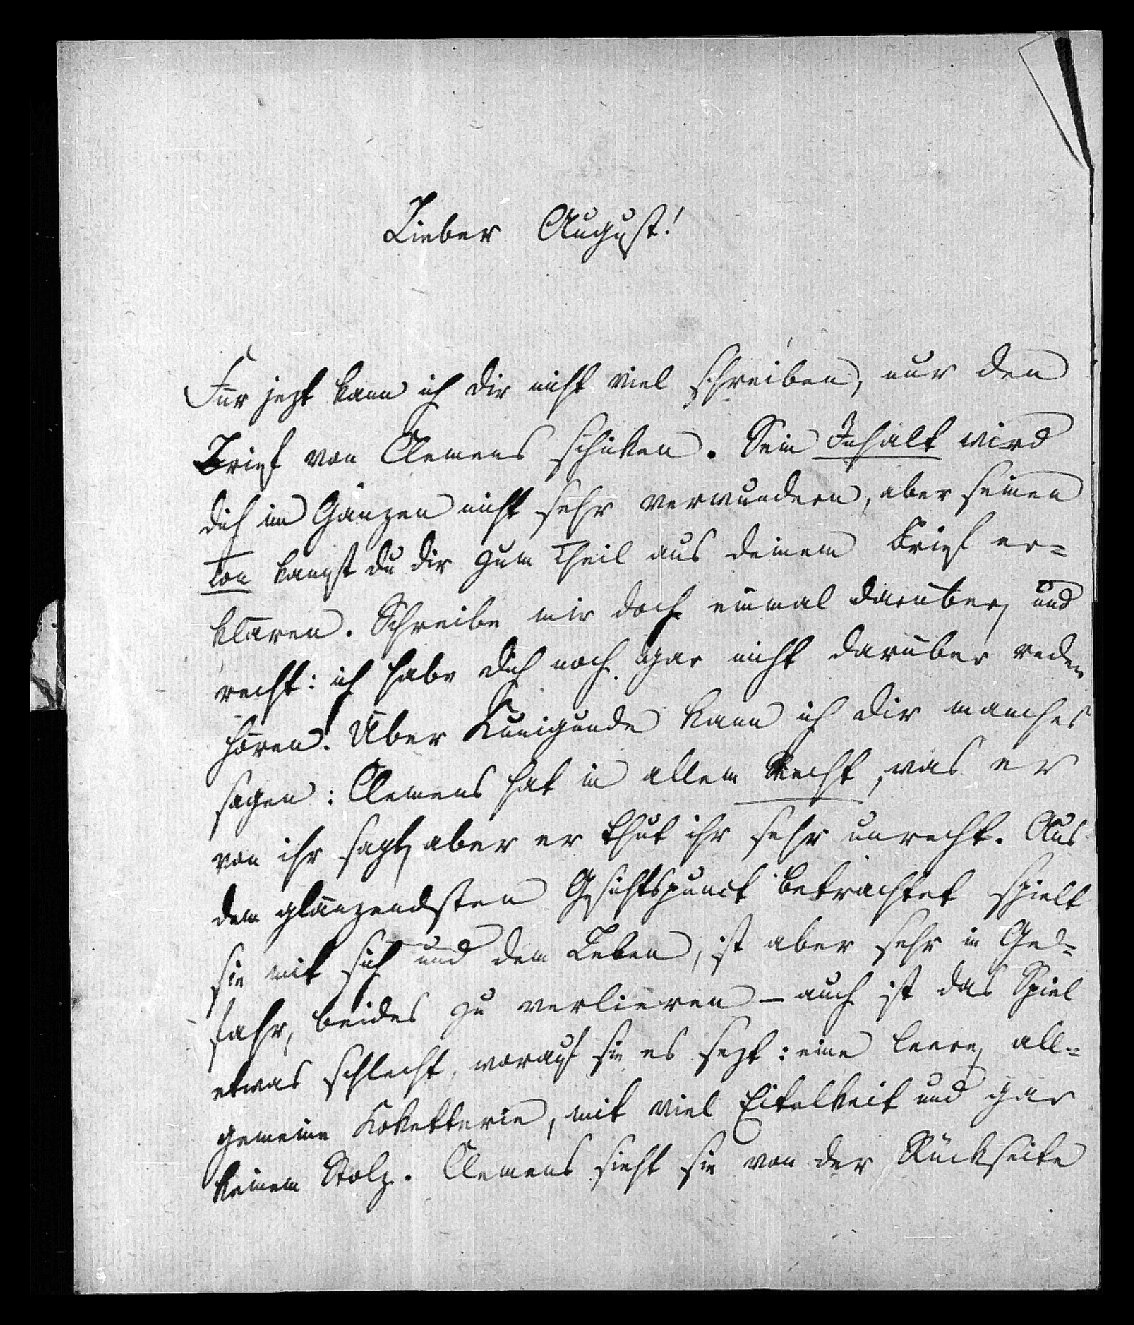 Lieber August!
Für jezt kann ich dir nicht viel schreiben, nur den
Brief von Clemens schicken. Sein Inhalt wird
dich im Ganzen nicht sehr verwundern, aber seinen
Ton kanst du dir zum Theil aus deinem Brief er=
klären. Schreibe mir doch einmal darüber, und
recht: ich habe dich noch gar nicht darüber reden
hören. Über Kunigunde kann ich dir manches
sagen: Clemens hat in allem Recht, was er
von ihr sagt, aber er thut ihr sehr unrecht. Aus
dem glänzendsten Gsichtspunct betrachtet spielt
sie mit sich und dem Leben, ist aber sehr in Ge=
fahr, beides zu verlieren – auch ist das Spiel
etwas schlecht, worauf sie es sezt: eine leere, all=
gemeine Koketterie, mit viel Eitelkeit und gar
keinem Stolz. Clemens sieht sie von der Rückseite